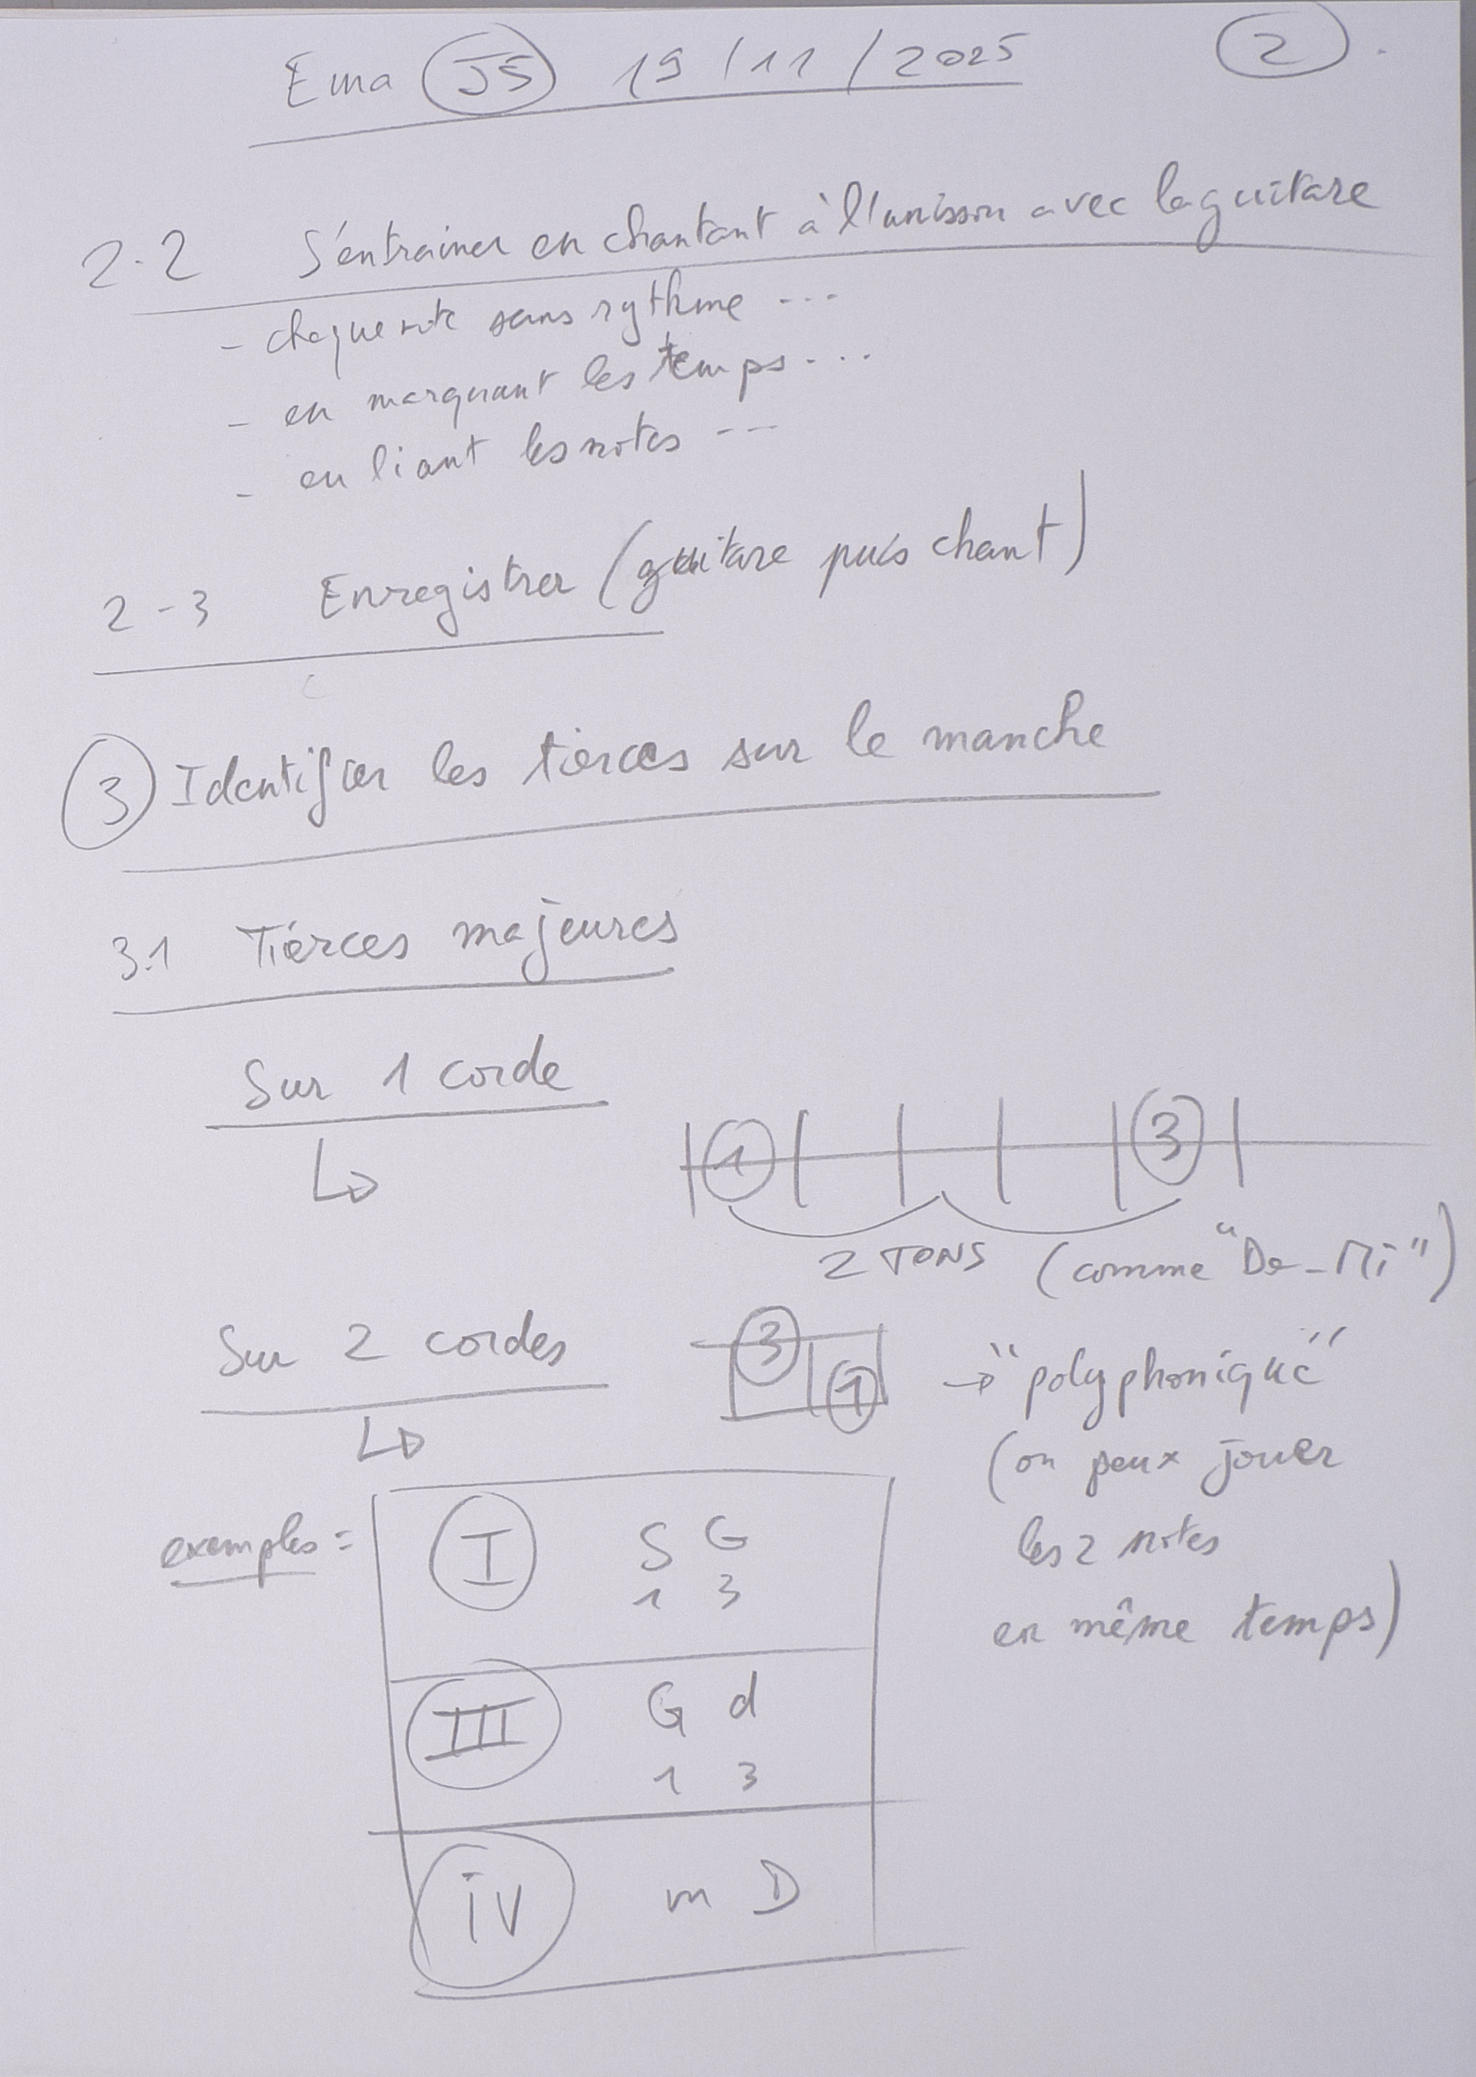 Ema J5 19/11/2025 2
2-2 S'entrainer en chantant à l'unisson avec la guitare
- chaque note sans rythme ...
- en marquant les temps ...
- en liant les notes ---
2-3 Enregistrer (guitare puis chant)
3 Identifier les tierces sur le manche
3.1 Tierces majeures
Sur 1 corde
1 3
2 TONS (comme "Do-Mi")
Sur 2 cordes
3 1
→ "polyphonique"
(on peux jouer
les 2 notes
en même temps)
exemples =
I S G
1 3
III G d
1 3
iv m D